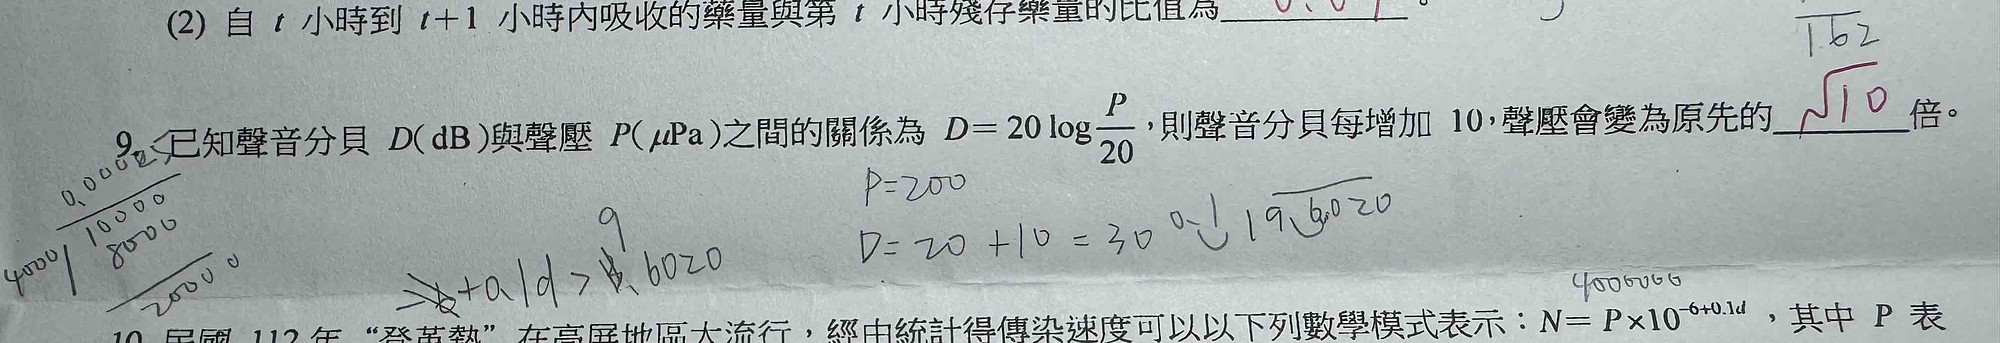 (2) 自 t 小時到 t+1 小時內吸收的藥量與第 t 小時殘存藥量的比值為
1.62
9. 已知聲音分貝 D(dB)與聲壓 P(μPa)之間的關係為 D=20 log P/20,則聲音分貝每增加 10,聲壓會變為原先的 √10 倍。
P=200
D=20+10=30
19.6020
+0.1d>9.6020
10000
4000
8000
20000
4000000
10. 民國 112 年 “登革熱” 在高屏地區大流行,經由統計得傳染速度可以以下列數學模式表示:N=P×10^(-6+0.1d),其中 P 表